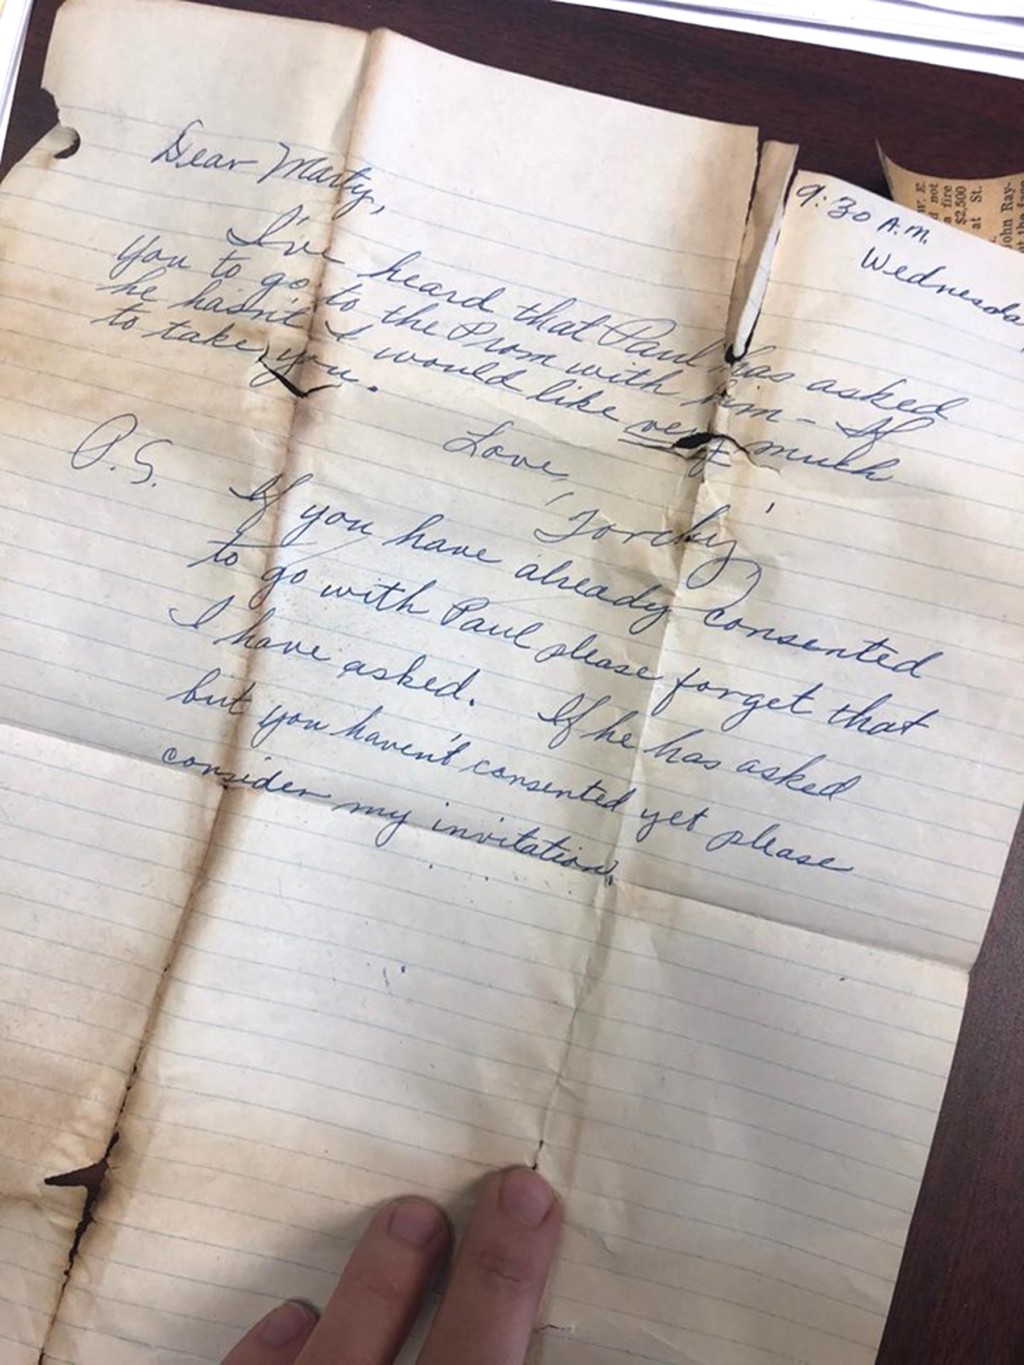 9:30 A.M.
Wednesda
Dear Marty,
I've heard that Paul has asked
you to go to the Prom with him - If
he hasn't I would like very much
to take you.
Love,
'Torchy'
P.S. If you have already consented
to go with Paul please forget that
I have asked. If he has asked
but you haven't consented yet please
consider my invitation.
W. E.
d not
a fire
$2,500
at St.
ohn Ray-